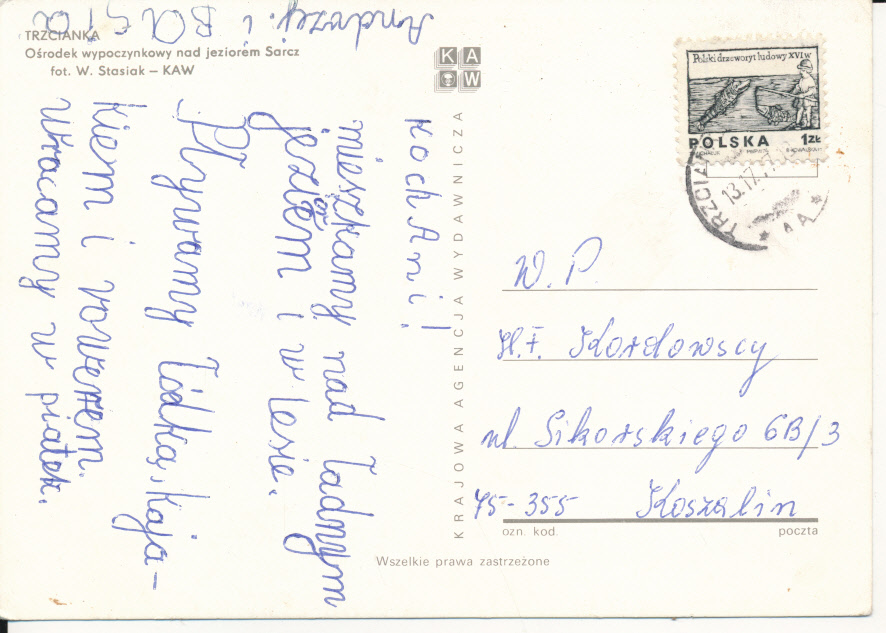 TRZCIANKA
Ośrodek wypoczynkowy nad jeziorem Sarcz
fot. W. Stasiak – KAW
KAW
KRAJOWA AGENCJA WYDAWNICZA
Wszelkie prawa zastrzeżone
KochAni!
mieszkamy nad ładnym
jeziorem i w lesie.
Pływamy łódką, kaja-
kiem i rowerem.
Wracamy w piątek.
Andrzej i BASIA
Polski drzeworyt ludowy XVI w
POLSKA 1 ZŁ
W. P.
H. F. Kordowscy
ul. Sikorskiego 6B/3
75-355 Koszalin
ozn. kod. poczta